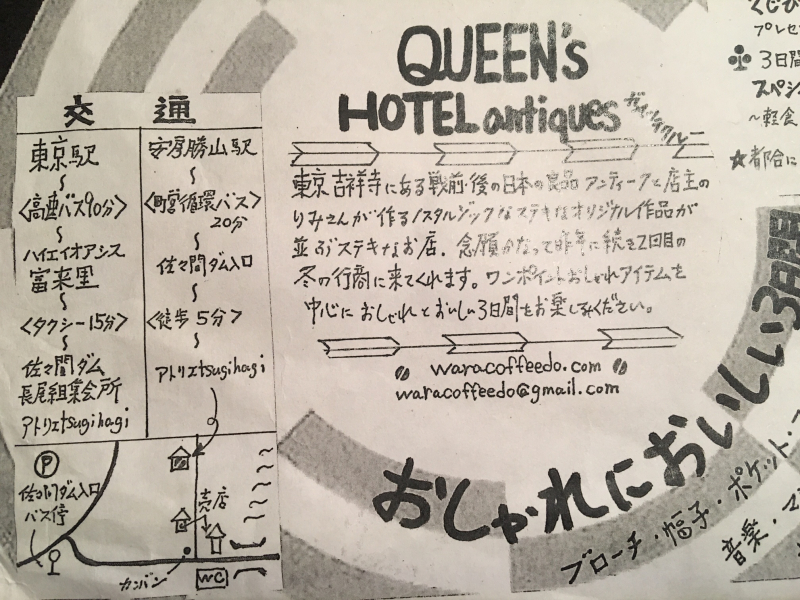 交 通
東京駅
〜
〈高速バス90分〉
〜
ハイエイオアシス
富来里
〜
〈タクシー15分〉
〜
佐々間ダム
長尾組集会所
アトリエtsugihagi
安房勝山駅
〜
〈町営循環バス〉
20分
〜
佐々間ダム入口
〜
〈徒歩5分〉
〜
アトリエtsugihagi
P
佐々間ダム入口
バス停
売店
カンバン
WC
QUEEN's
HOTEL antiques
東京吉祥寺にある戦前・後の日本の良品アンティークと店主の
りみさんが作るノスタルジックなステキなオリジナル作品が
並ぶステキなお店。念願かなって昨年に続き2回目の
冬の行商に来てくれます。ワンポイントおしゃれアイテムを
中心におしゃれとおいしい3日間をお楽しみください。
waracoffeedo.com
waracoffeedo@gmail.com
おしゃれにおいしい3日間
ブローチ・帽子・ポケット・
音楽・
くじび
プレゼ
3日間
スペシ
〜軽食
★都合に